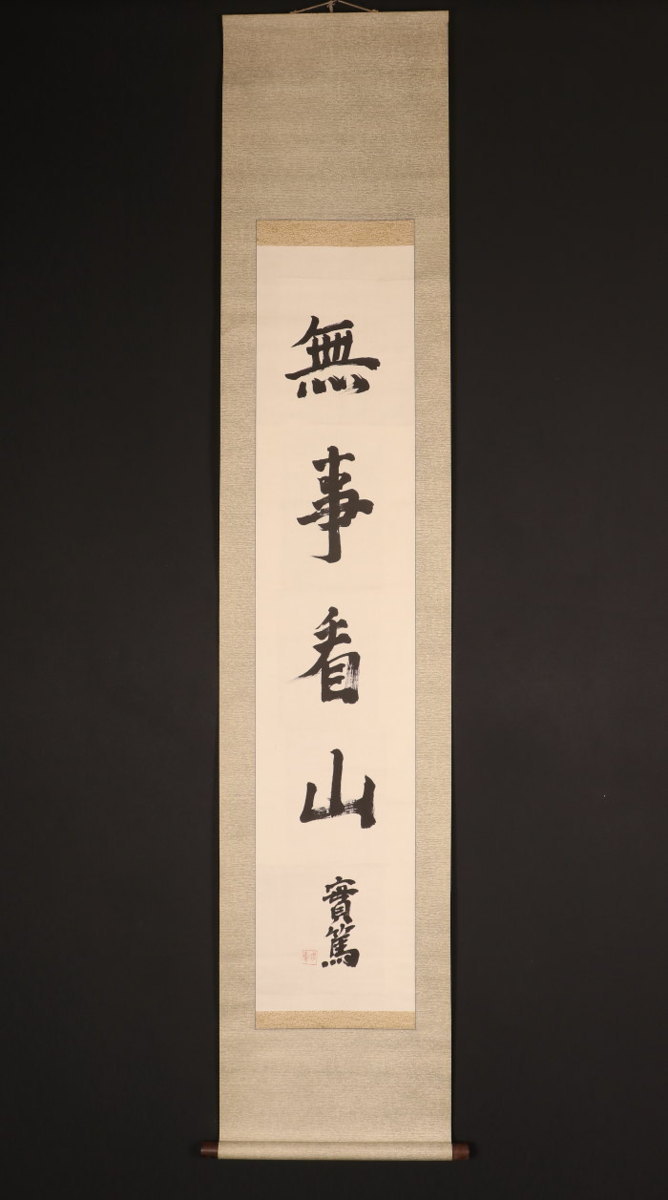 無事看山
實篤